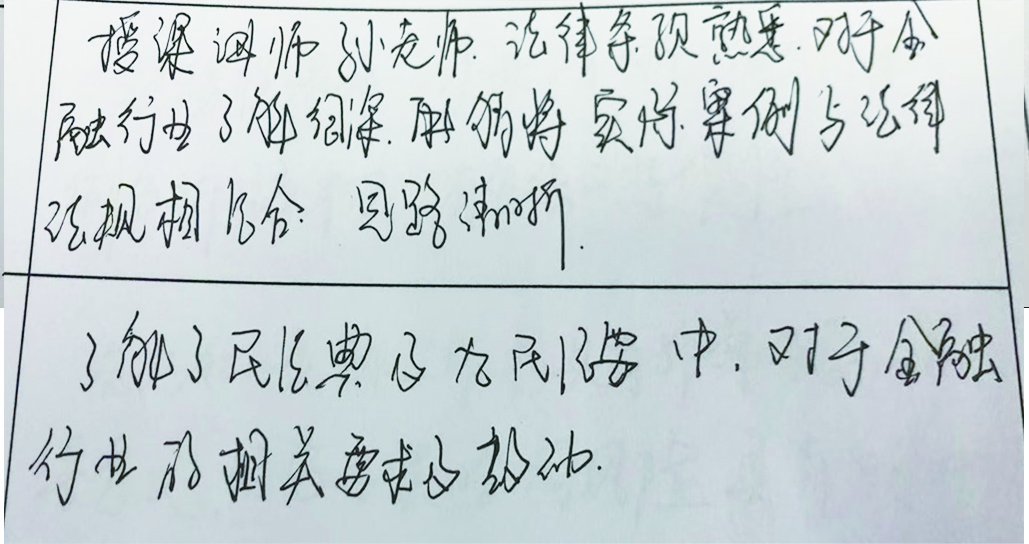 授课讲师孙老师.法律条款熟悉.对于金
融行业了解细深.能够将实际案例与法律
法规相结合.思路清晰.
了解了民法典及大民法中.对于金融
行业的相关要求及